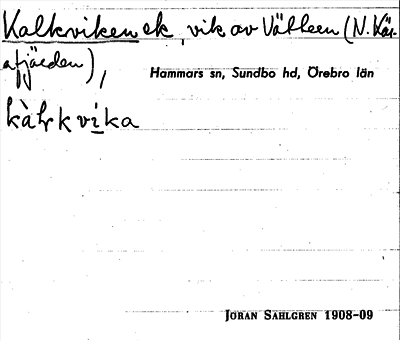 Kalkviken ek, vik av Vättern (N. Kär-
rafjärden),
Hammars sn, Sundbo hd, Örebro län
kàlrkvika
JÖRAN SAHLGREN 1908-09